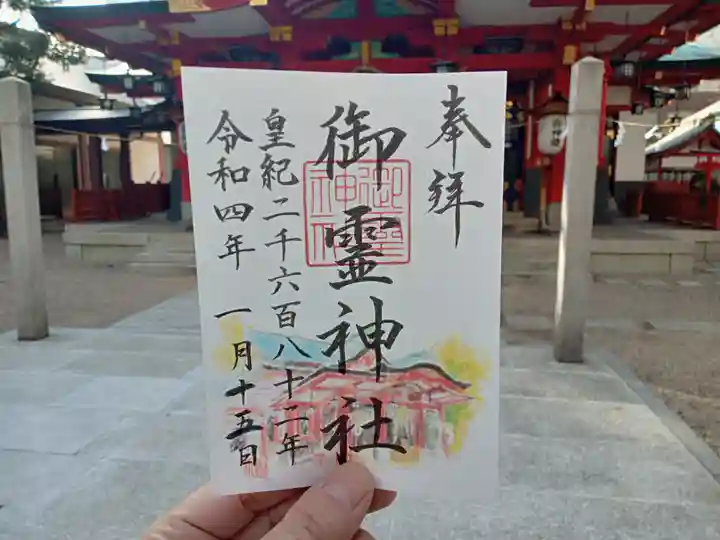 奉拝
御霊神社
皇紀二千六百八十二年
令和四年 一月十五日